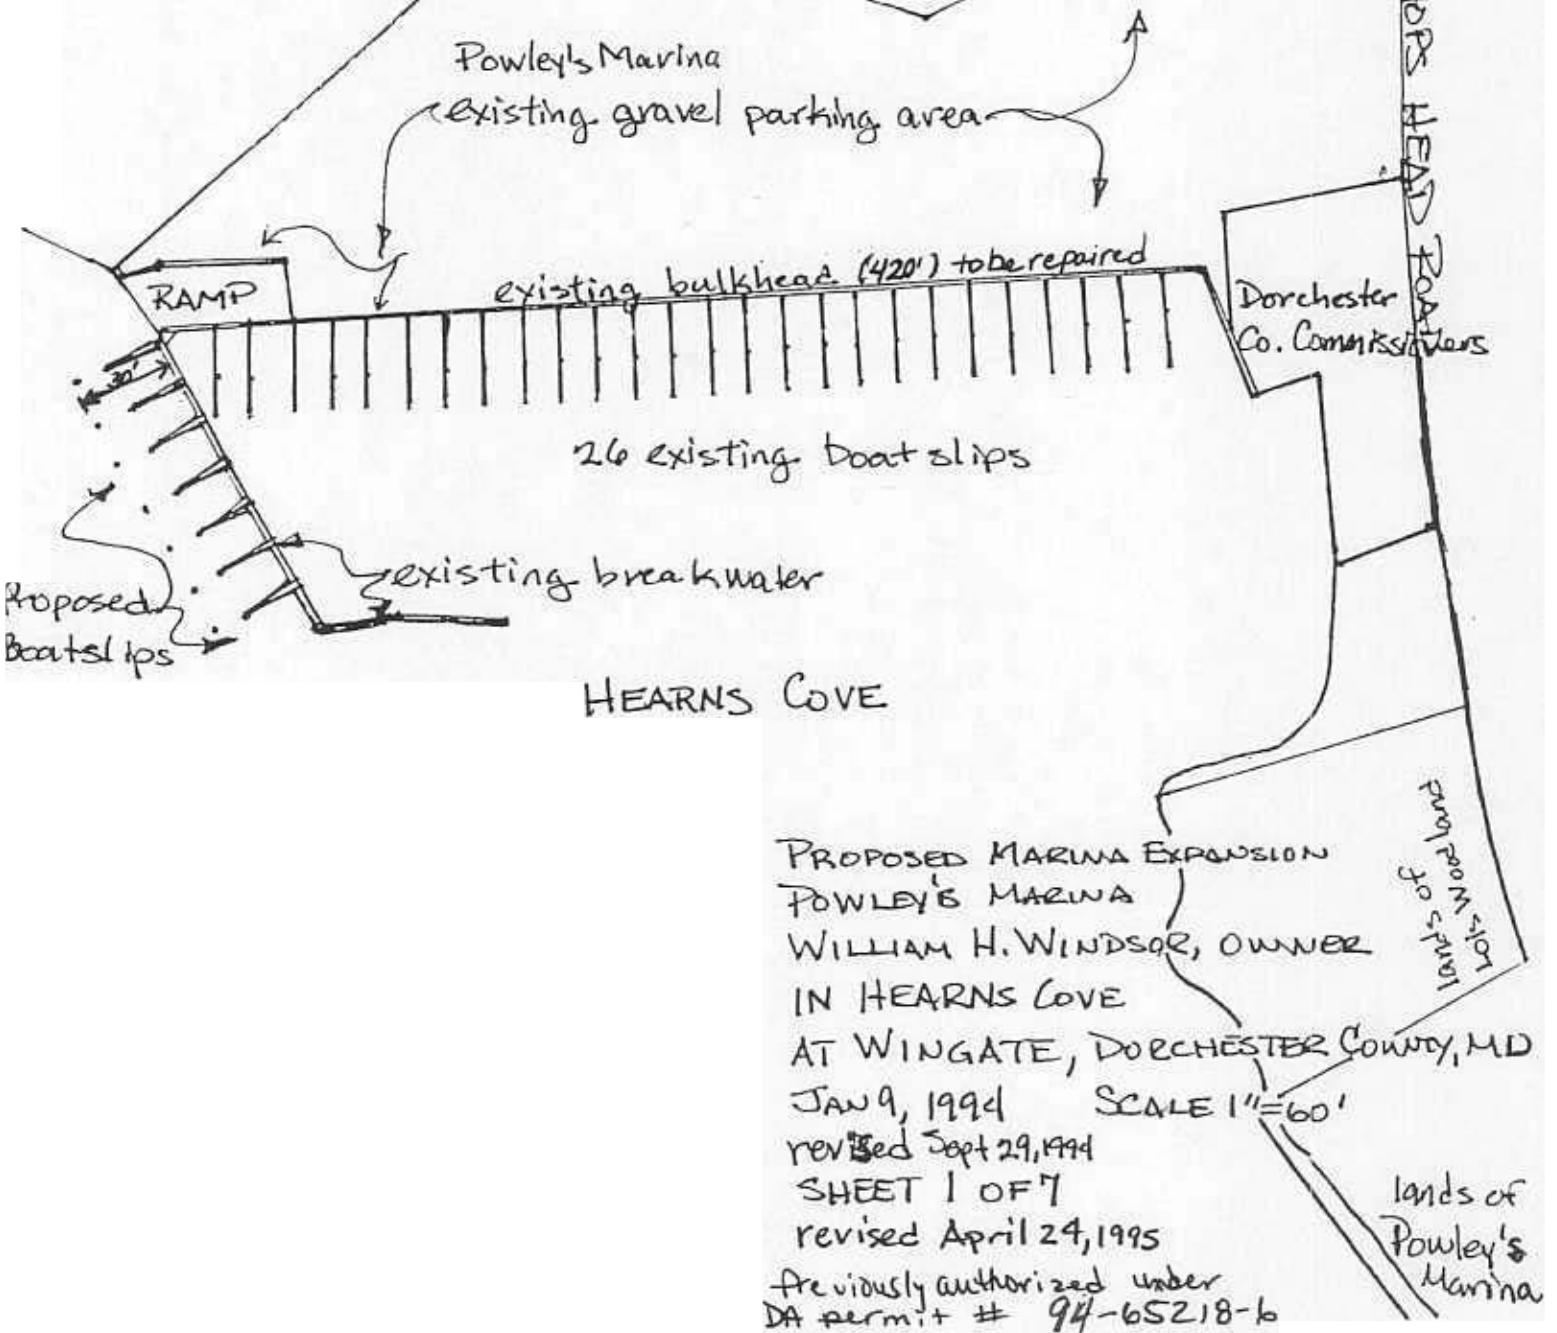 Powley's Marina
existing gravel parking area
OPS HEAD ROAD
RAMP
existing bulkhead (420') to be repaired
Dorchester
Co. Commissioners
30'
26 existing boatslips
existing breakwater
Proposed
Boatslips
HEARNS COVE
lands of
Lois Woodland
PROPOSED MARINA EXPANSION
POWLEY'S MARINA
WILLIAM H. WINDSOR, OWNER
IN HEARNS COVE
AT WINGATE, DORCHESTER COUNTY, MD
JAN 9, 1994 SCALE 1"=60'
revised Sept 29, 1994
SHEET 1 OF 7
revised April 24, 1995
Previously authorized under
DA permit # 94-65218-6
lands of
Powley's
Marina